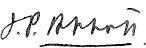 J.P. Abbott